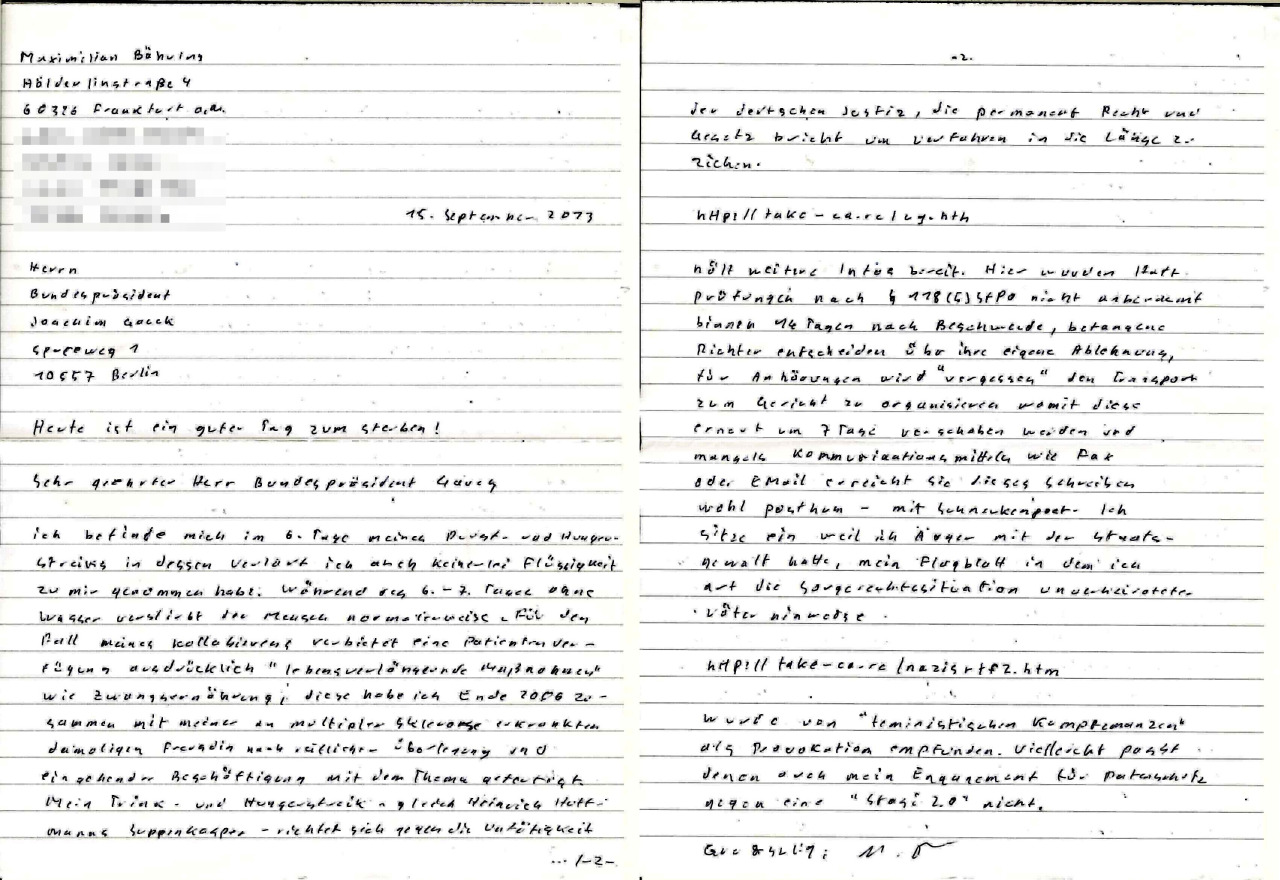 Maximilian Bähring
Hölderlinstraße 4
60316 Frankfurt a.M.
15. September 2013
Herrn
Bundespräsident
Joachim Gauck
Spreeweg 1
10557 Berlin
Heute ist ein guter Tag zum sterben!
Sehr geehrter Herr Bundespräsident Gauck
ich befinde mich im 6. Tage meines Durst- und Hunger-
streiks in dessen verlauf ich auch keinerlei Flüssigkeit
zu mir genommen habe. Während des 6. - 7. Tages ohne
Wasser verstirbt der Mensch normalerweise. Für den
Fall meines kollabierens verbietet eine Patientenver-
fügung ausdrücklich "lebensverlängernde Maßnahmen"
wie Zwangsernährung, diese habe ich Ende 2006 zu-
sammen mit meiner an multipler Sklerose erkrankten
damaligen Freundin nach reiflicher Überlegung und
eingehender Beschäftigung mit dem Thema gefertigt.
Mein Trink- und Hungerstreik - gleich Heinrich Hoff-
manns Suppenkasper - richtet sich gegen die Untätigkeit
... /-2-
-2-
der deutschen Justiz, die permanent Recht und
Gesetz bricht um verfahren in die Länge zu
ziehen.
http://take-ca.re/ug.htm
hält weitere Infos bereit. Hier wurden Haft-
prüfungen nach § 118(5) StPO nicht anberaumt
binnen 14 Tagen nach Beschwerde, befangene
Richter entscheiden über ihre eigene Ablehnung,
für Anhörungen wird "vergessen" den Transport
zum Gericht zu organisieren womit diese
erneut um 7 Tage verschoben werden und
mangels Kommunikationsmitteln wie Fax
oder EMail erreicht sie dieses schreiben
wohl posthum - mit Schneckenpost. Ich
sitze ein weil ich Ärger mit der Staats-
gewalt hatte, mein Flugblatt in dem ich
auf die Sorgerechtssituation unverheirateter
Väter hinweise.
http://take-ca.re/nazisrtf2.htm
wurde von "feministischen Kampfemanzen"
als Provokation empfunden. Vielleicht passt
denen auch mein Engagement für Datenschutz
gegen eine "Stasi 2.0" nicht.